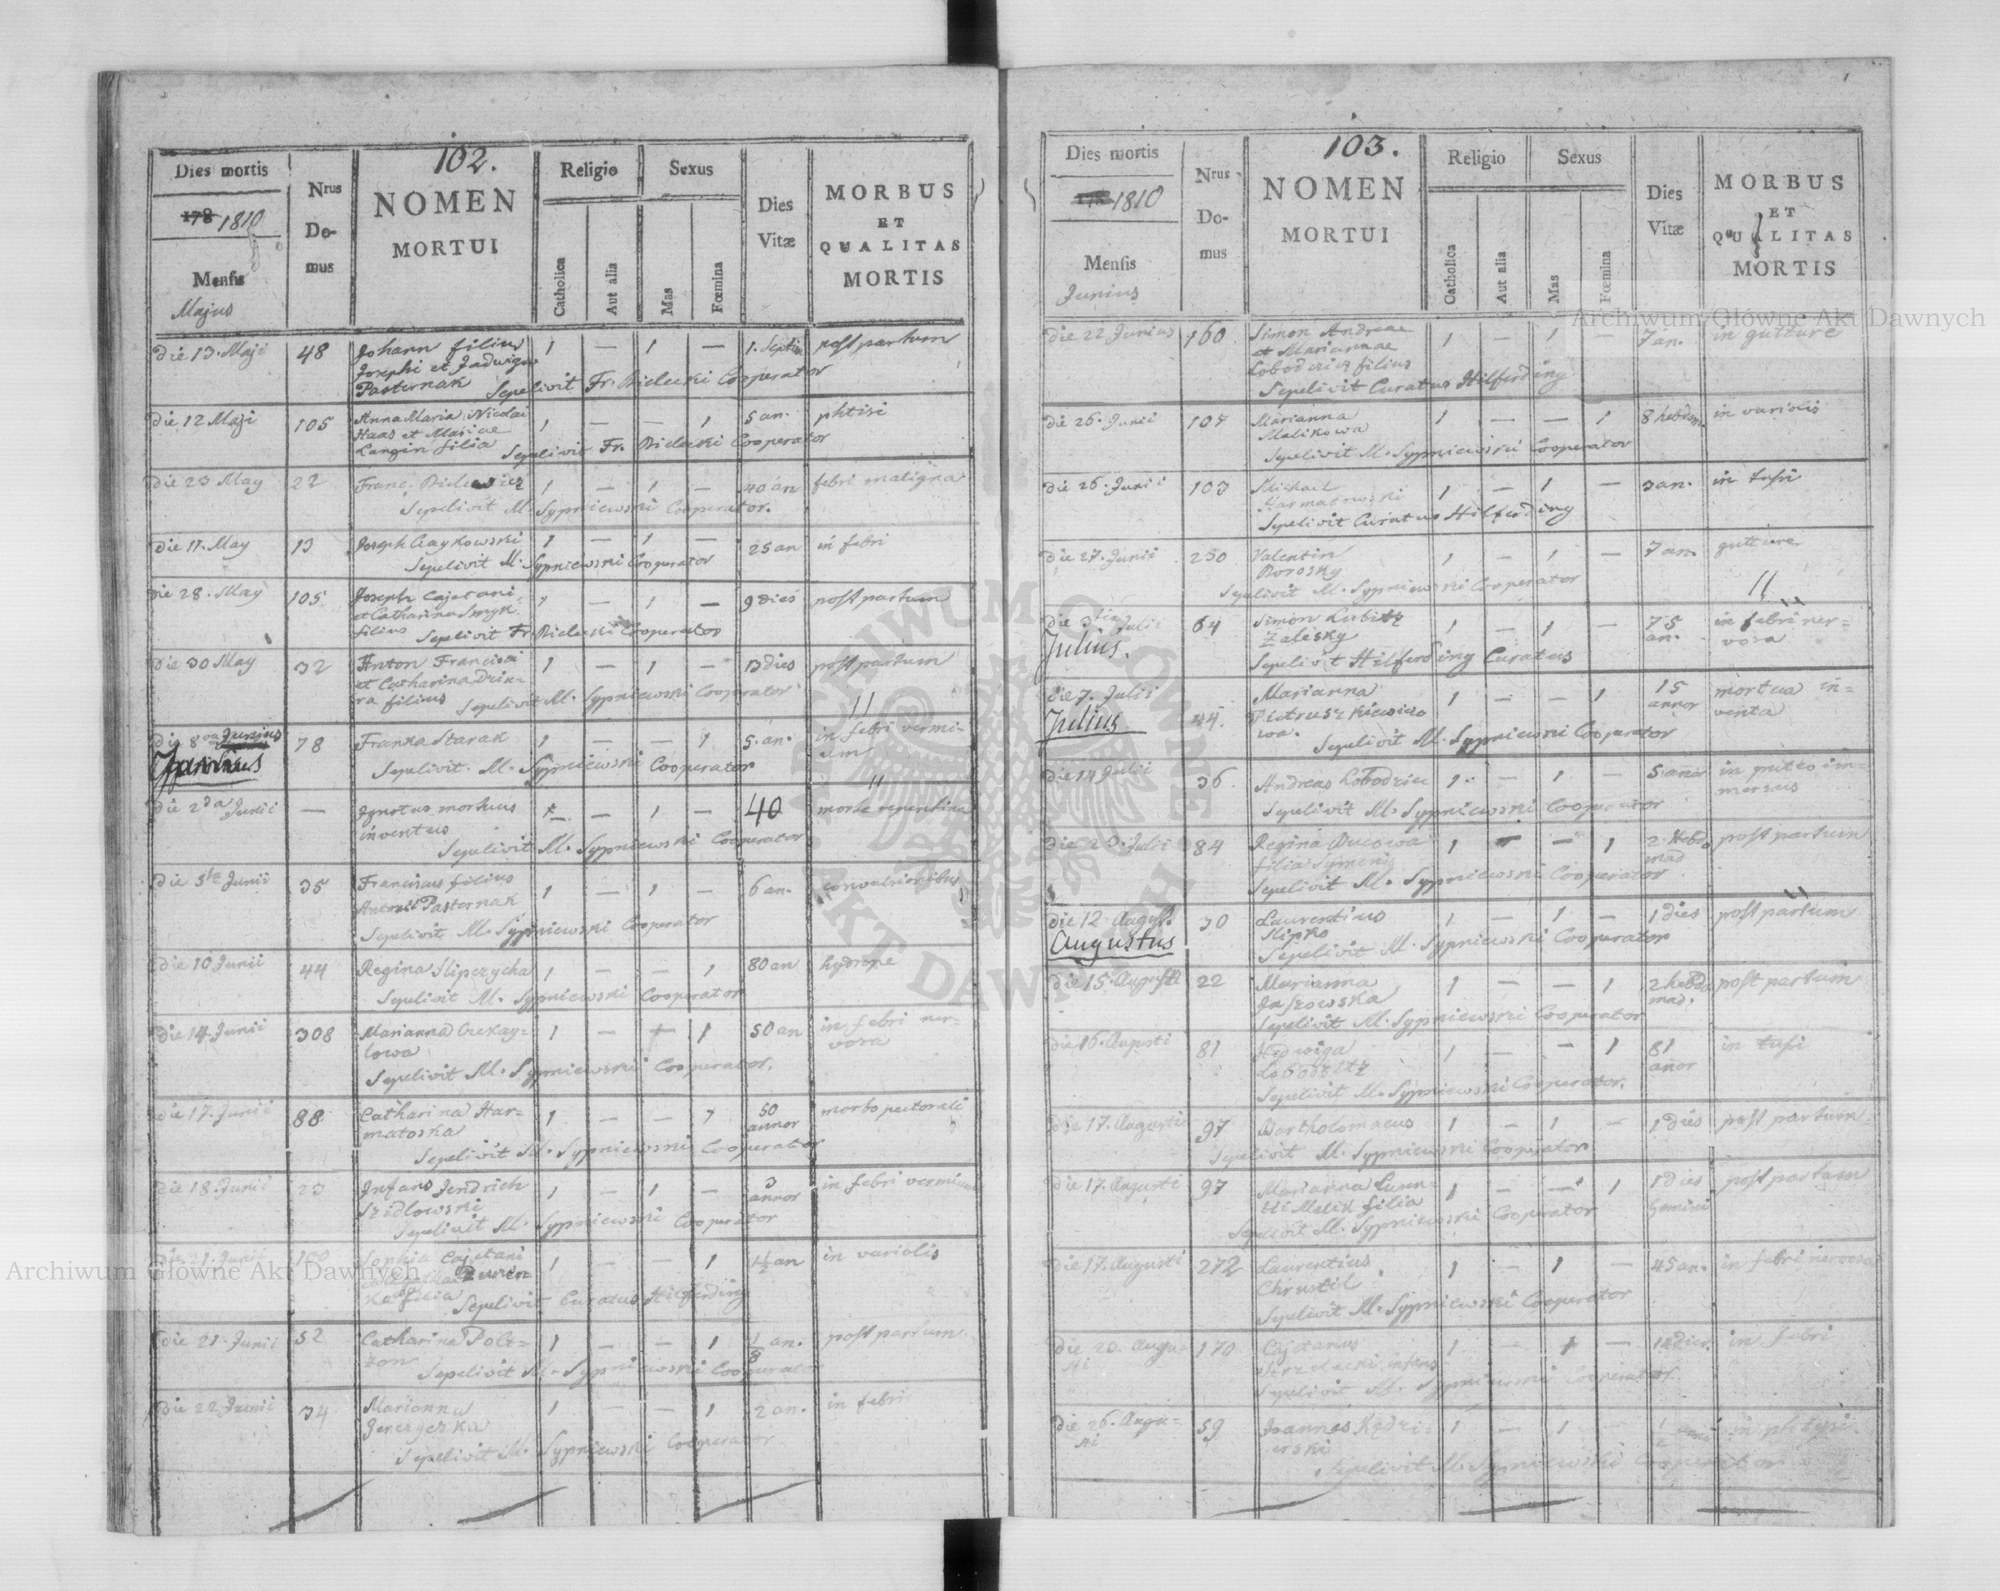 102.
Dies mortis
178 1810
Mensis
Majus
Nrus
Do-
mus
NOMEN
MORTUI
Religio
Catholica
Aut alia
Sexus
Mas
Fœmina
Dies
Vitæ
MORBUS
ET
QUALITAS
MORTIS
die 13. Maji 48 Johann filius 1 — 1 — 1. post partum
Josephi et Jadwigae
Pasternak Sepelivit Fr. Bielecki Cooperator
die 12 Maji 105 Anna Maria Nicolai 1 — — 1 5 an. phtisi
Haas et Mariae
Langin filia Sepelivit Fr. Bielecki Cooperator
die 23 May 22 Franc. 1 — 1 — 40 an febri maligna
Sepelivit M. Sypniewski Cooperator.
die 11. May 13 Joseph Czaykowski 1 — 1 — 25 an in febri
Sepelivit M. Sypniewski Cooperator
die 28. May 105 Joseph Cajetani 1 — 1 — 9 dies post partum
et Catharina Smyk
filius Sepelivit Fr. Bielecki Cooperator
die 30 May 32 Anton Francisci 1 — 1 — 13 dies post partum
et Catharina
filius Sepelivit M. Sypniewski Cooperator
die 8va Junius 78 Franka Starak 1 — — 1 5. an. in febri vermi-
Junius um
Sepelivit. M. Sypniewski Cooperator
die 2da Junii — Ignotus mortuus — 1 — 40 morte repentina
inventus
Sepelivit M. Sypniewski Cooperator
die 5ta Junii 35 Franciscus filius 1 — 1 — 6 an. convulsionibus
Antonii Pasternak
Sepelivit M. Sypniewski Cooperator
die 10 Junii 44 Regina Slipczycha 1 — — 1 80 an hydrope
Sepelivit M. Sypniewski Cooperator
die 14. Junii 308 Marianna Czekay- 1 — 1 50 an in febri ner-
lowa vosa
Sepelivit M. Sypniewski Cooperator.
die 17. Junii 88 Catharina Har- 1 — — 1 50 morbo pectorali
matoska annor
Sepelivit M. Sypniewski Cooperator
die 18. Junii 23 Infans Jendrich 1 — 1 — 3 in febri vermium
Szidlowski annor
Sepelivit M. Sypniewski Cooperator
die 21. Junii Sophia Cajetani 1 — — 1 1½ an in variolis
filia Sepelivit Curatus Hilferding
die 21 Junii 52 Catharina Pole- 1 — — 1 an. post partum
zon
Sepelivit M. Sypniewski Cooperator
die 22 Junii 34 Marianna 1 — — 1 2 an. in febri
Jerczyczka
Sepelivit M. Sypniewski Cooperator
103.
Dies mortis
1810
Mensis
Junius
Nrus
Do-
mus
NOMEN
MORTUI
Religio
Catholica
Aut alia
Sexus
Mas
Fœmina
Dies
Vitæ
MORBUS
ET
QUALITAS
MORTIS
die 22 Junius 160 Simon Andreae 1 — 1 — 7 an. in gutture
et Mariannae
filius
Sepelivit Curatus Hilferding
die 26. Junii Marianna 1 — — 1 8 hebdom in variolis
Malikowa
Sepelivit M. Sypniewski Cooperator
die 26. Junii 103 Michael 1 — 1 — 3 an. in tusi
Harmatowski
Sepelivit Curatus Hilferding
die 27. Junii 230 Valentin 1 — 1 — 7 an. gutture
Borosky
Sepelivit M. Sypniewski Cooperator
die 3tia Julii 64 Simon Lubitz 1 — 1 — 75 in febri ner-
Julius. Zalesky an. vosa
Sepelivit Hilferding Curatus
die 7. Julii 44. Marianna 1 — — 1 15 mortua in-
Julius Pietruszkiewico annor venta
wa. Sepelivit M. Sypniewski Cooperator
die 14 Julii 36. Andreas Lobodziec 1 — 1 — 5 annor in puteo im-
mersus
Sepelivit M. Sypniewski Cooperator
die 23. Julii 84 Regina Bucowa 1 — — 1 2. Hebdo post partum
filia mad
Sepelivit M. Sypniewski Cooperator
die 12 August. 30 Laurentius 1 — 1 — 1 dies post partum
Augustus Slipko
Sepelivit M. Sypniewski Cooperator
die 15. Augusti 22 Marianna 1 — — 1 2 hebdo post partum
Jaszowska mad.
Sepelivit M. Sypniewski Cooperator
die 16. Augusti 81 Hedwiga 1 — — 1 81 in tusi
annor
Sepelivit M. Sypniewski Cooperator.
die 17. Augusti 97 Bartholomaeus 1 — 1 — 1 dies post partum
Sepelivit M. Sypniewski Cooperator
die 17. Augusti 97 Marianna Lauren- 1 — — 1 1 dies post partum
ti Melik filia Gemini
Sepelivit M. Sypniewski Cooperator
die 17. Augusti 272 Laurentius 1 — 1 — 45 an. in febri nervosa
Chrustil
Sepelivit M. Sypniewski Cooperator
die 23. Augu- 170 Cajetanus 1 — 1 — in febri
sti Strzelecki infans
Sepelivit M. Sypniewski Cooperator
die 26. Augu- 59 Joannes Kędzi- 1 — 1 —
sti erski
Sepelivit M. Sypniewski Cooperator
Archiwum Główne Akt Dawnych
Archiwum Główne Akt Dawnych
ARCHIWUM GŁÓWNE AKT DAWNYCH